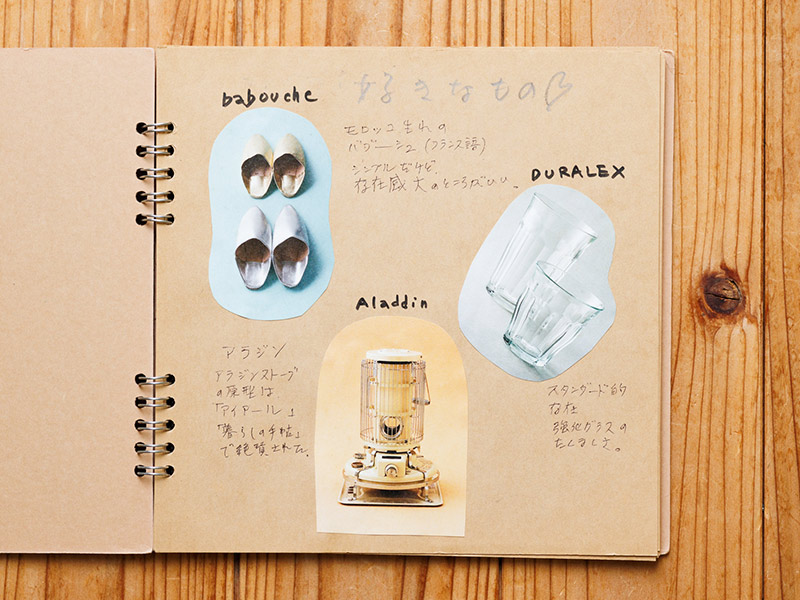 好きなもの♡
babouche
モロッコ生れの
バブーシュ(フランス語)
シンプルだけど、
存在感大のところがいい。
DURALEX
スタンダード的
な存在
強化ガラスの
たくましさ。
Aladdin
アラジン
アラジンストーブ
の原型は、
「アイアール」
「暮しの手帖」
で絶賛された。